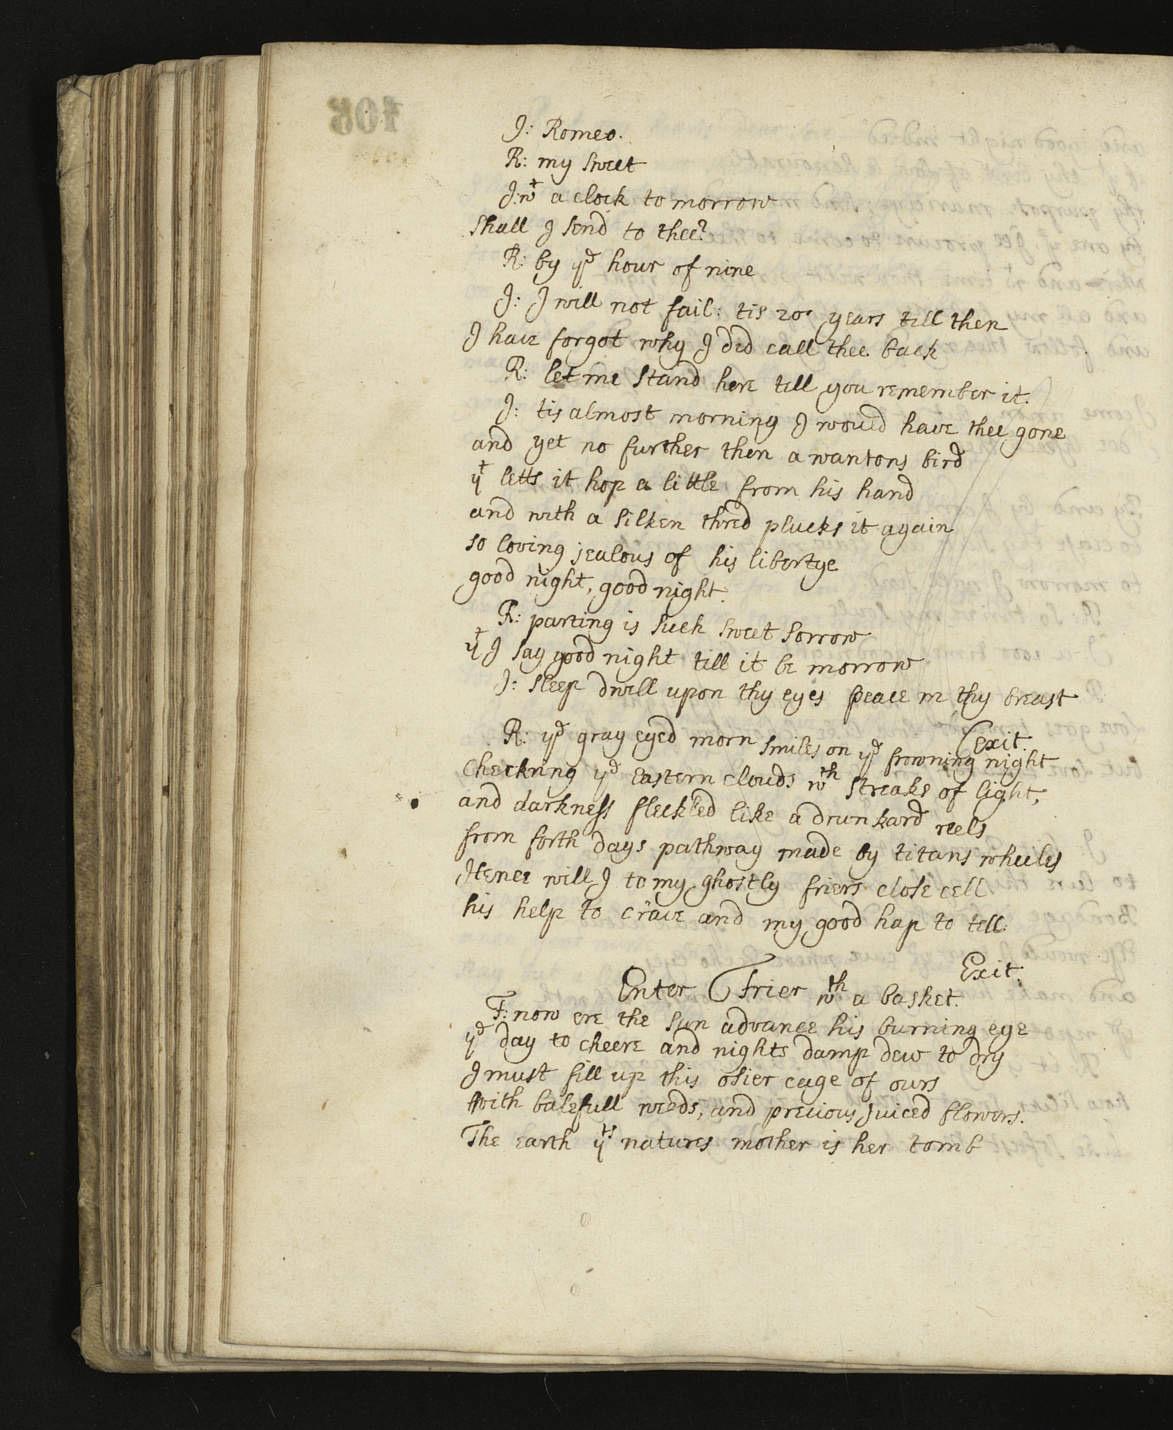 J: Romeo.
R: my sweet
J: wt a clock to morrow
shall I send to thee?
R: by ye hour of nine
J: I will not fail: tis 20 years till then
I have forgot why I did call thee back
R: let me stand here till you remember it.
J: tis almost morning I would have thee gone
and yet no further then a wantons bird
yt letts it hop a little from his hand
and with a silken thred plucks it again
so loving jealous of his libertye
good night, good night.
R: parting is such sweet sorrow
yt I say good night till it be morrow
J: sleep dwell upon thy eyes peace in thy breast
(exit
R: ye gray eyed morn smiles on ye frowning night
checkring ye eastern clouds wth streaks of light,
and darkness fleckled like a drunkard reels
from forth days pathway made by titans wheeles
Hence will I to my ghostly friers close cell
his help to crave and my good hap to tell.
Exit.
Enter Frier wth a basket.
F: now ere the sun advance his burning eye
ye day to cheere and nights damp dew to dry
I must fill up this osier cage of ours
with balefull weeds, and precious juiced flowers.
The earth yts natures mother is her tomb